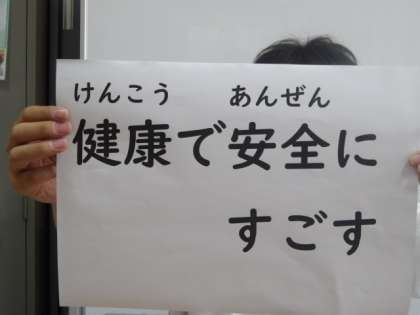 けんこう あんぜん
健康で安全に
すごす